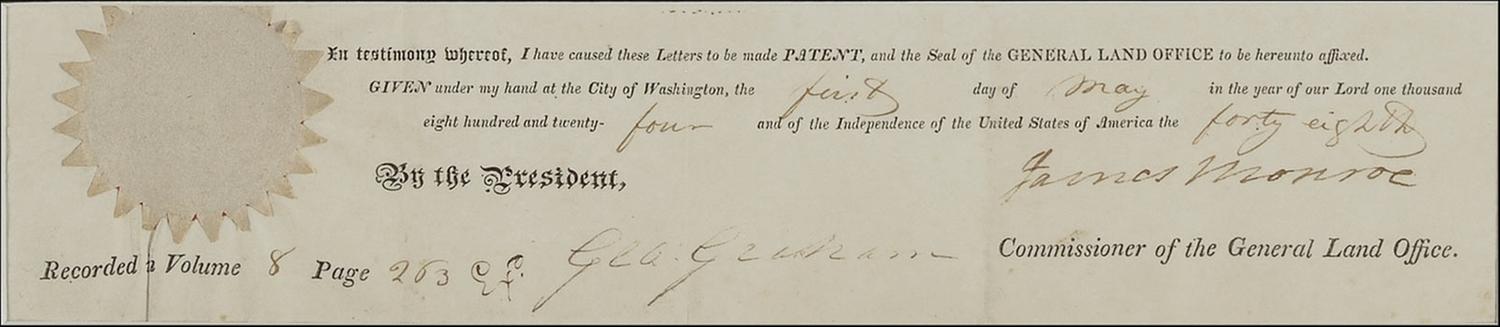 In testimony whereof, I have caused these Letters to be made PATENT, and the Seal of the GENERAL LAND OFFICE to be hereunto affixed.
GIVEN under my hand at the City of Washington, the first day of May in the year of our Lord one thousand
eight hundred and twenty- four and of the Independence of the United States of America the forty eighth
By the President,
James Monroe
Geo. Graham Commissioner of the General Land Office.
Recorded n Volume 8 Page 263